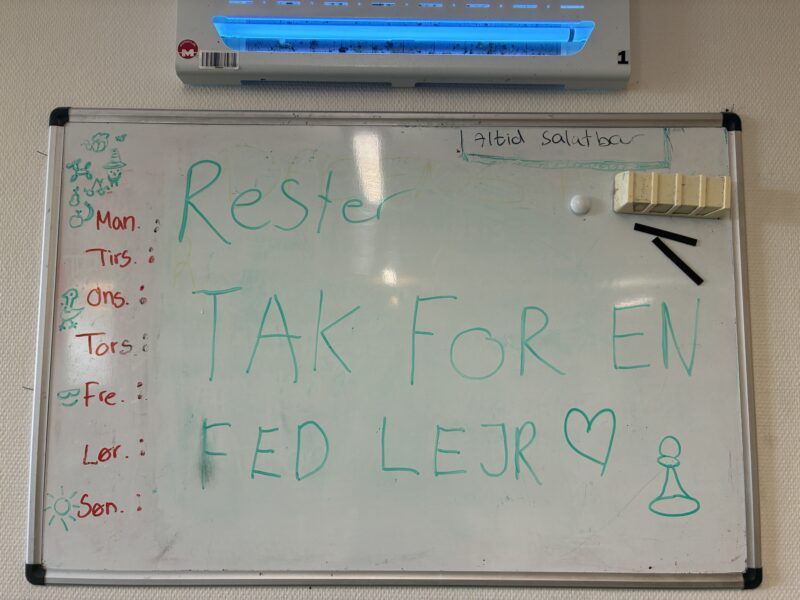 1
Altid salatbar
Rester
Man. :
Tirs. :
Ons. :
Tors. :
Fre. :
Lør. :
Søn. :
TAK FOR EN
FED LEJR